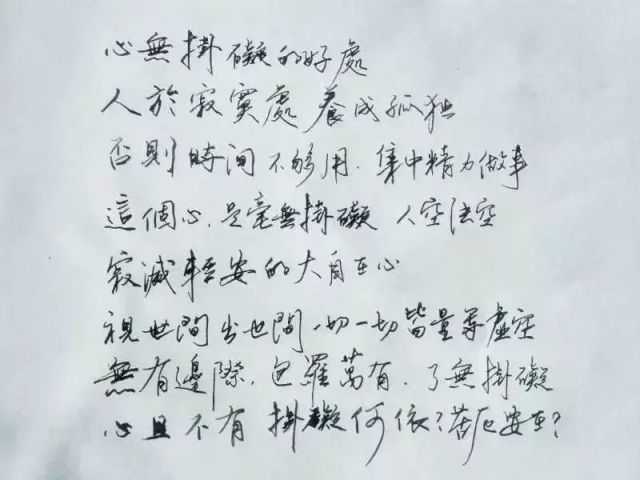 心無掛礙的好處
人於寂寞處 養成孤独
否則時间不够用.集中精力做事
這個心,是毫無掛礙 人空法空
寂滅輕安的大自在心
視世間出世間,一切一切皆量等虛空
無有邊際,包羅萬有.了無掛礙
心且不有 掛礙何依?苦厄安在?